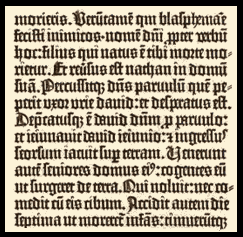 morieris. Verūtamē qm̄ blasphemare
fecisti inimicos nomē dn̄i, ꝓpter verbū
hoc: filius qui natus ē tibi morte mo-
rietur. Et reūsus est nathan in domū
suā. Percussitqꝫ dn̄s parvulū quē pe-
perit uxor vrie david: et desperatus est.
Dep̄catusqꝫ ē david dn̄m ꝓ parvulo:
et ieiunavit david ieiunio: ⁊ ingressus
seorsum iacuit sup̄ terram. Venerunt
autē seniores domus eiꝰ: cogentes eū
ut surgeret de terra. Qui noluit: nec co-
medit cū eis cibum. Accidit autem die
septima ut moreret̄ infās: timuerūtqꝫ